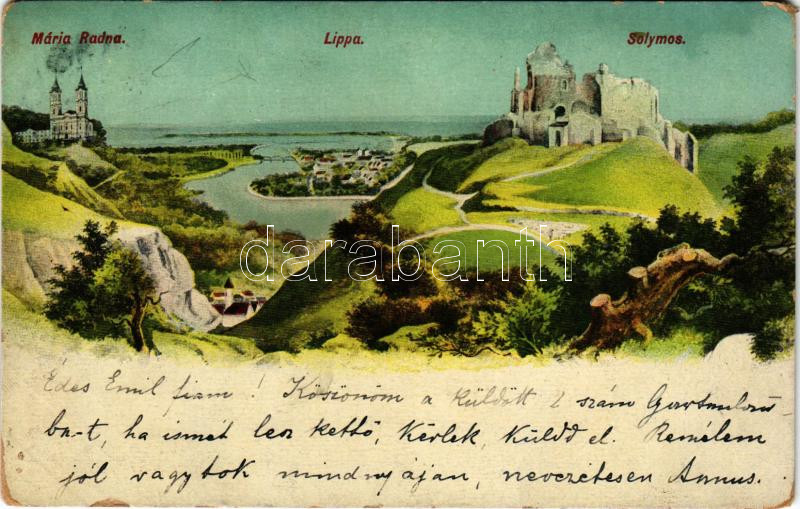 Mária Radna. Lippa. Solymos.
darabanth
Édes Emil fiam! Köszönöm a küldött 2 szám
ba-t, ha ismét lesz kettő, kérlek, küldd el. Remélem
jól vagytok mindnyájan, nevezetesen Annus.